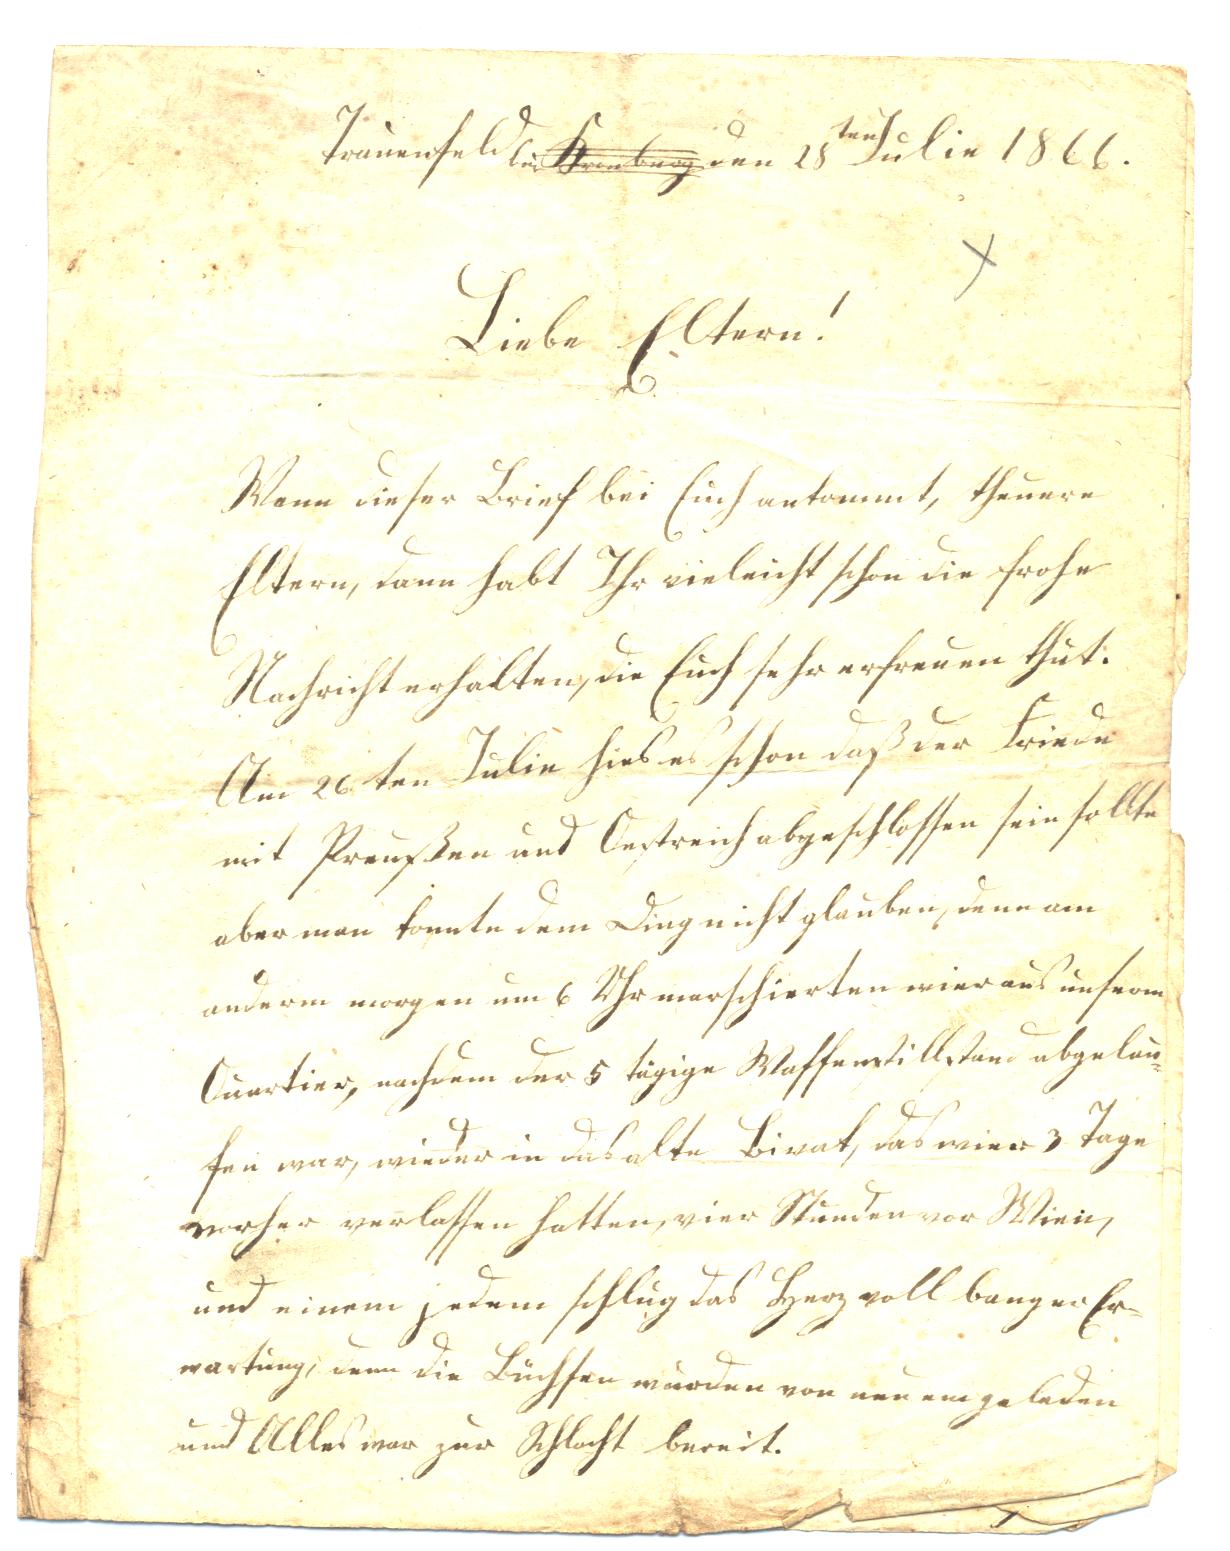 Trauenfeld bei den 28ten Julie 1866.
Liebe Eltern!
Wenn dieser Brief bei Euch ankommt, theuere
Eltern, dann habt Ihr vieleicht schon die frohe
Nachricht erhalten, die Euch sehr erfreuen thut.
Am 26ten Julie hies es schon daß der Friede
mit Preußen und Oestreich abgeschlossen sein sollte
aber man konnte dem Ding nicht glauben, denn am
anderm morgen um 6 Uhr marschierten wier aus unserm
Quartier, nachdem der 5 tägige Waffenstillstand abgelau-
fen war, wieder in das alte Bivak, das wier 3 Tage
vorher verlassen hatten, vier Stunden vor Wien,
und einem jedem schlug das Herz voll banger Er-
wartung, denn die Büchsen wurden von neuem geladen
und Alles war zur Schlacht bereit.